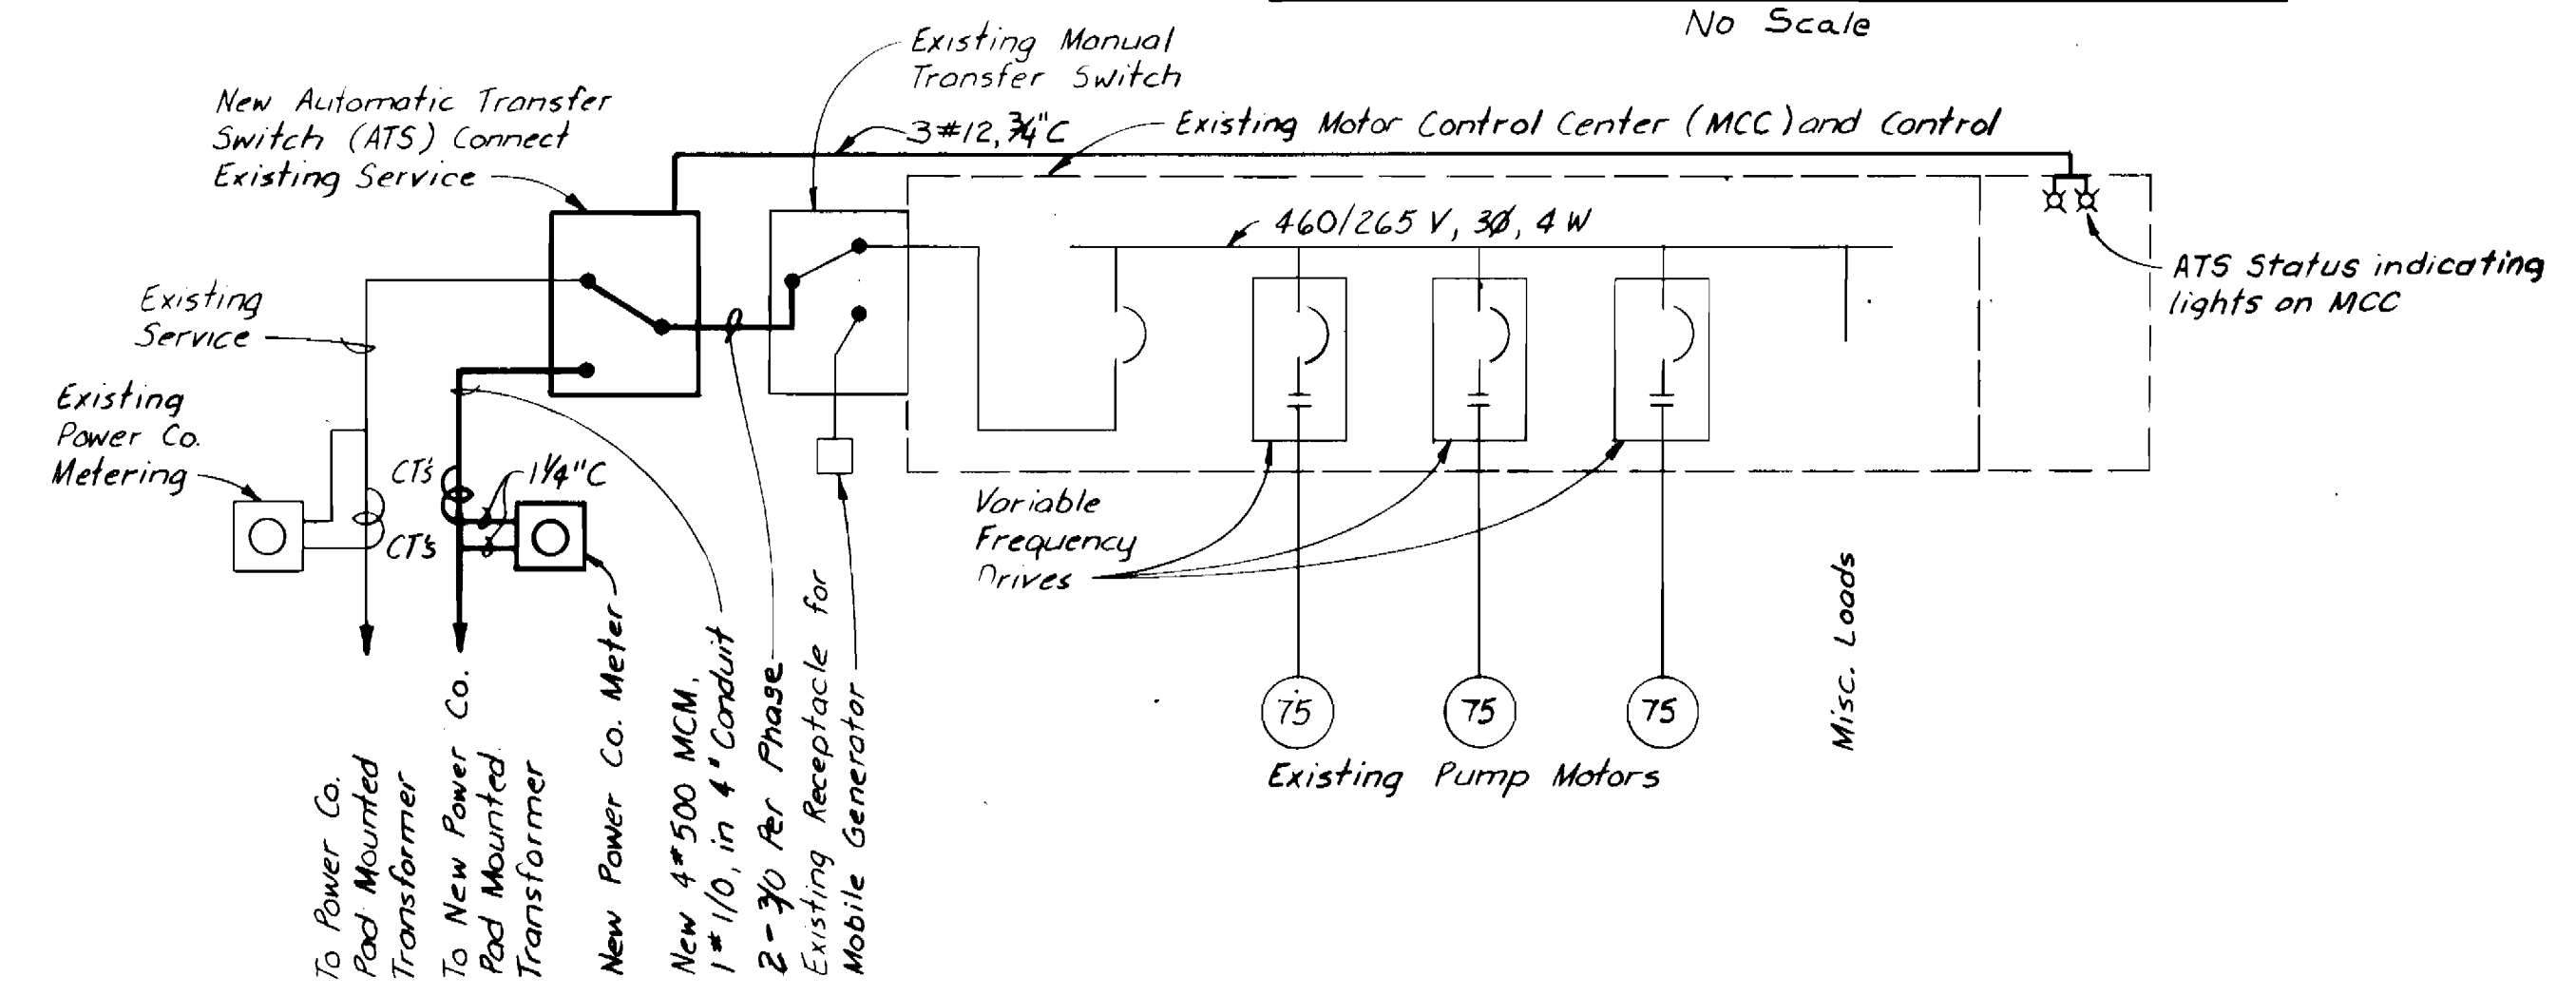 No Scale
Existing Manual
Transfer Switch
New Automatic Transfer
Switch (ATS) Connect
Existing Service
3#12, 3/4"C
Existing Motor Control Center (MCC) and Control
460/265 V, 3Ø, 4 W
ATS Status indicating
lights on MCC
Existing
Service
Existing
Power Co.
Metering
CT's
1 1/4"C
CT's
Variable
Frequency
Drives
To Power Co.
Pad Mounted
Transformer
To New Power Co.
Pad Mounted
Transformer
New Power Co. Meter
New 4#500 MCM,
1#1/0, in 4" Conduit
2-3/0 Per Phase
Existing Receptacle for
Mobile Generator
75
75
75
Existing Pump Motors
Misc. Loads